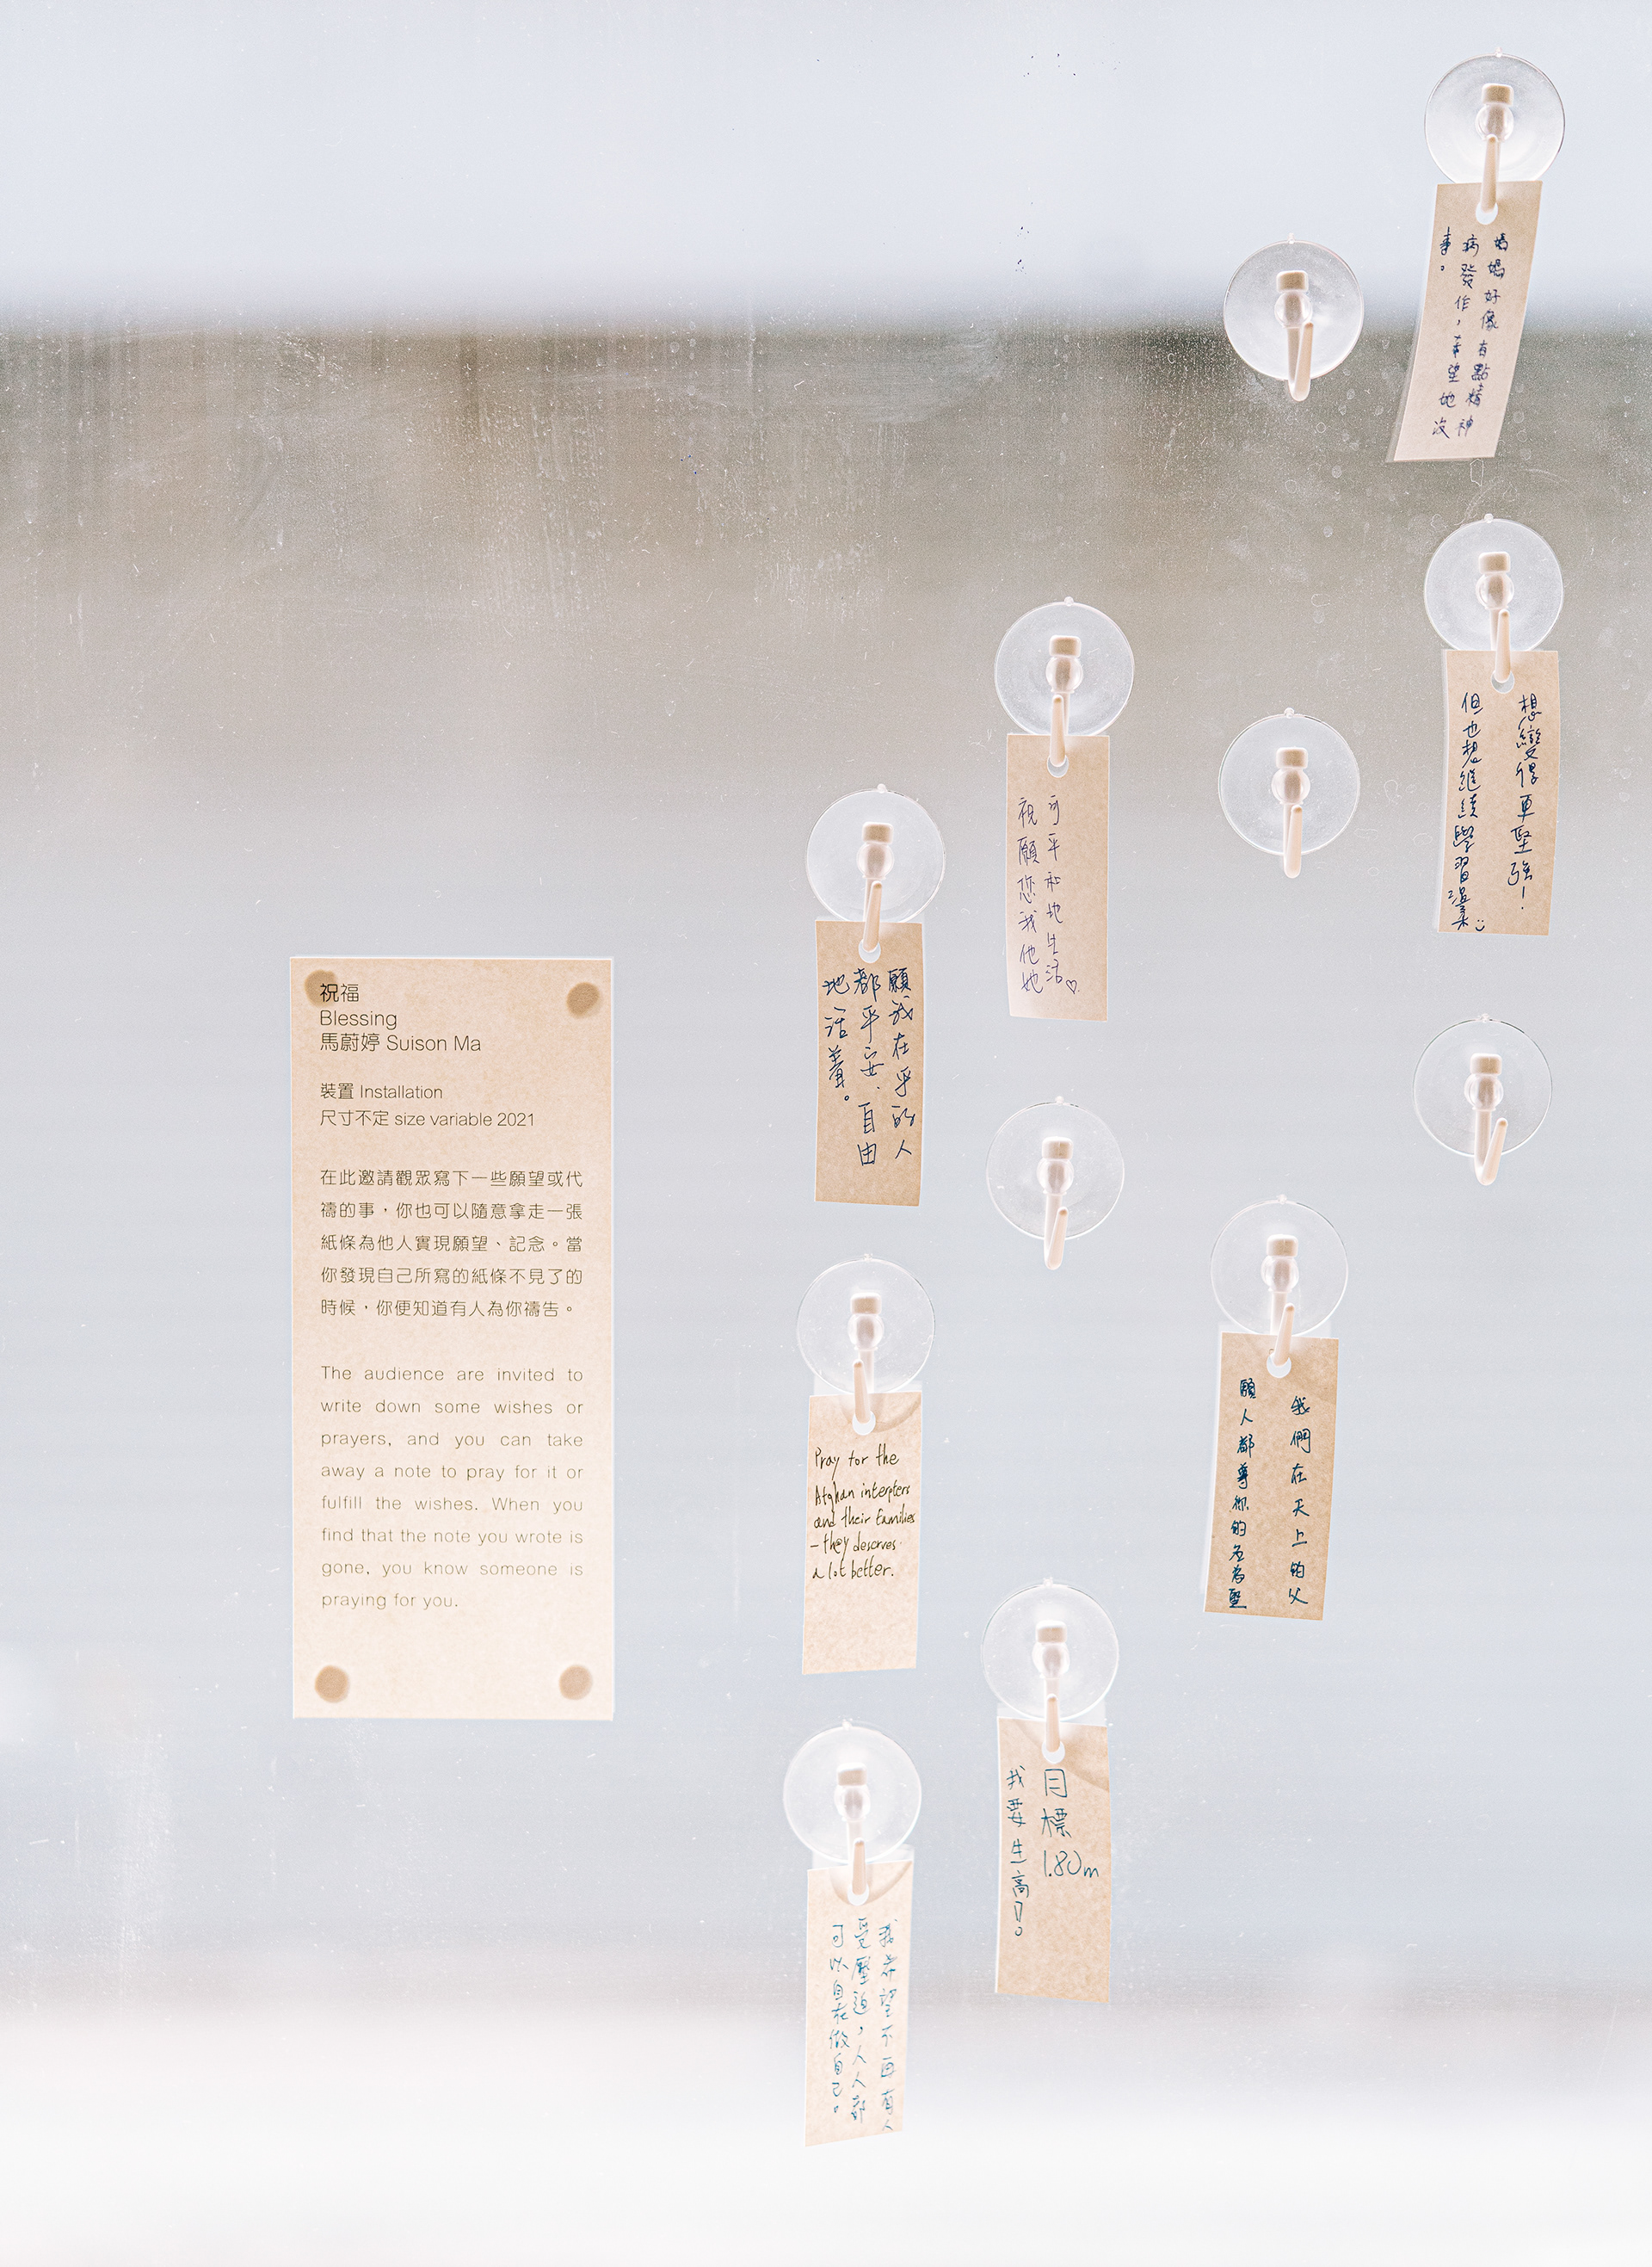 祝福
Blessing
馬蔚婷 Suison Ma
裝置 Installation
尺寸不定 size variable 2021
在此邀請觀眾寫下一些願望或代
禱的事，你也可以隨意拿走一張
紙條為他人實現願望、記念。當
你發現自己所寫的紙條不見了的
時候，你便知道有人為你禱告。
The audience are invited to
write down some wishes or
prayers, and you can take
away a note to pray for it or
fulfill the wishes. When you
find that the note you wrote is
gone, you know someone is
praying for you.
媽媽好像有點精神
病發作，希望她沒
事。
想變得更堅強！
但也想繼續學習溫柔
祝願您我他她
可平和地生活♡
願我在乎的人
都平安、自由
地活着。
Pray for the
Afghan interpters
and their families
- they deserves
a lot better.
我們在天上的父
願人都尊你的名為聖
目標1.80m
我要生高！
我希望不再有人
受壓迫，人人都
可以自在做自己。